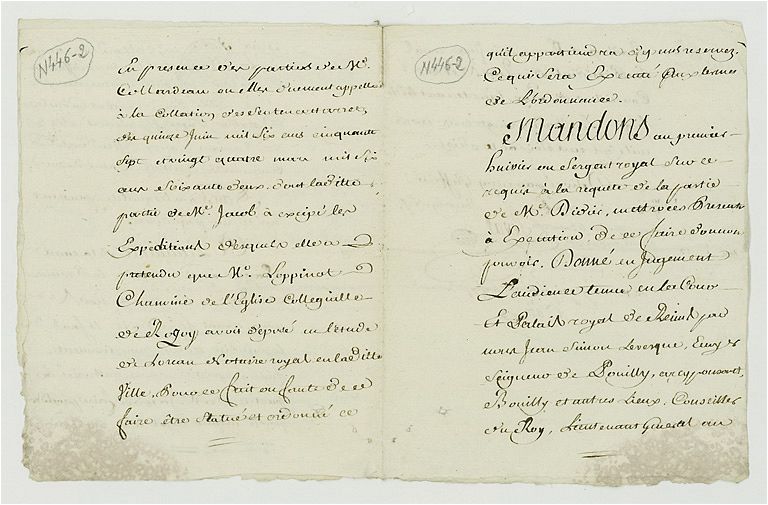 N446-2
En presence des parties de Me.
Collardeau ou elles duement appellées
à la Collation des Sentence et arrest
des quinze Juin mil six cens cinquante
Sept et vingt quatre mars mil six
cens soixante deux, dont laditte
partie de Me. Jacob a excipé les
Expeditions desquels elle a
pretendu que Me. Leppinot
Chanoine de l'Eglise Collegialle
de Rozoy avoit deposé en l'etude
de Notaire royal en laditte
Ville, Pour ce fait ou faute de ce
faire être statué et ordonné ce
N446-2
qu'il appartiendra depens reservez.
Ce qui sera Executé aux termes
de L'ordonnance.
Mandons au premier
huissier ou Sergent royal sur ce
requis à la requete de la partie
de Me. mettre ces Presentes
à Execution, De ce faire donnons
pouvoir. Donné en Jugement
L'audience tenue en la Cour
Et Palais royal de Reims par
nous Jean Simon Levesque, Ecuyer
Seigneur de Pouilly,
Bouilly et autres Lieux, Conseiller
du Roy, Lieutenant General au